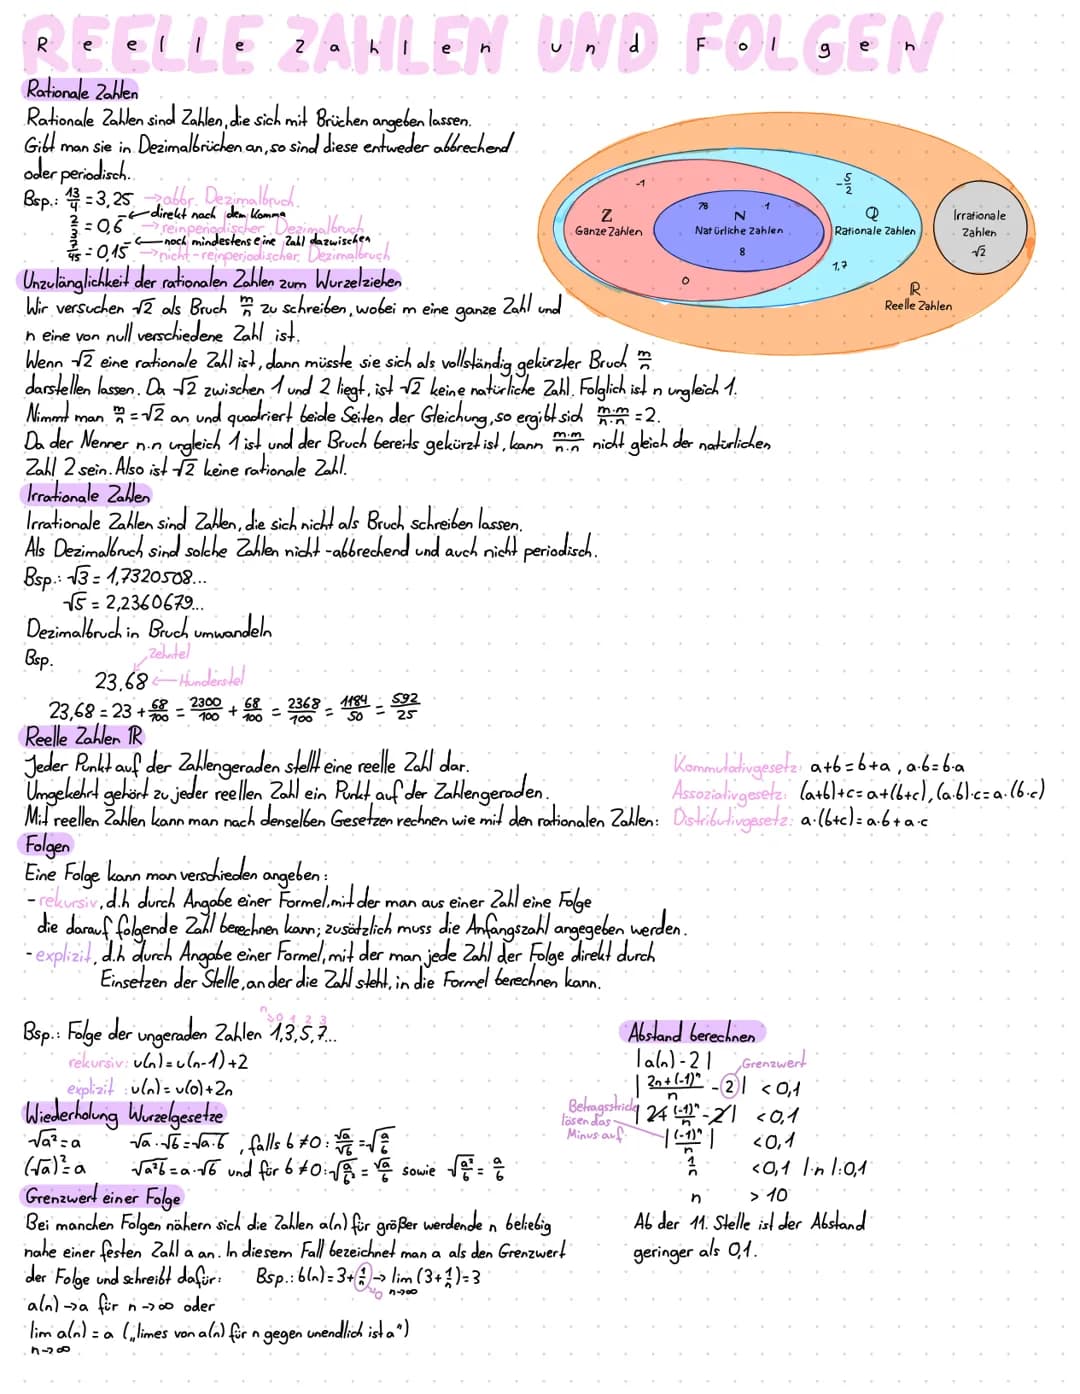 REELLE ZAHLEN UND FOLGEN
Reelle Zahlen und Folgen
Rationale Zahlen
Rationale Zahlen sind Zahlen, die sich mit Brüchen angeben lassen.
Gibt man sie in Dezimalbrüchen an, so sind diese entweder abbrechend
oder periodisch.
Bsp.: 13/4 = 3,25 → abbr. Dezimalbruch
direkt nach dem Komma
2/3 = 0,6̅ → reinperiodischer Dezimalbruch
noch mindestens eine Zahl dazwischen
7/45 = 0,15̅ → nicht-reinperiodischer Dezimalbruch
-1
Z
Ganze Zahlen
78
1
N
Natürliche Zahlen
8
0
-5/2
Q
Rationale Zahlen
1,7
R
Reelle Zahlen
Irrationale
Zahlen
√2
Unzulänglichkeit der rationalen Zahlen zum Wurzelziehen
Wir versuchen √2 als Bruch m/n zu schreiben, wobei m eine ganze Zahl und
n eine von null verschiedene Zahl ist.
Wenn √2 eine rationale Zahl ist, dann müsste sie sich als vollständig gekürzter Bruch m/n
darstellen lassen. Da √2 zwischen 1 und 2 liegt, ist √2 keine natürliche Zahl. Folglich ist n ungleich 1.
Nimmt man m/n = √2 an und quadriert beide Seiten der Gleichung, so ergibt sich m·m/n·n = 2.
Da der Nenner n·n ungleich 1 ist und der Bruch bereits gekürzt ist, kann m·m/n·n nicht gleich der natürlichen
Zahl 2 sein. Also ist √2 keine rationale Zahl.
Irrationale Zahlen
Irrationale Zahlen sind Zahlen, die sich nicht als Bruch schreiben lassen.
Als Dezimalbruch sind solche Zahlen nicht-abbrechend und auch nicht periodisch.
Bsp.: √3 = 1,7320508...
√5 = 2,2360679...
Dezimalbruch in Bruch umwandeln
Bsp.
Zehntel
23,68 ← Hunderstel
23,68 = 23 + 68/100 = 2300/100 + 68/100 = 2368/100 = 1184/50 = 592/25
Reelle Zahlen ℝ
Jeder Punkt auf der Zahlengeraden stellt eine reelle Zahl dar.
Umgekehrt gehört zu jeder reellen Zahl ein Punkt auf der Zahlengeraden.
Mit reellen Zahlen kann man nach denselben Gesetzen rechnen wie mit den rationalen Zahlen:
Kommutativgesetz: a+b=b+a, a·b=b·a
Assoziativgesetz: (a+b)+c=a+(b+c), (a·b)·c=a·(b·c)
Distributivgesetz: a·(b+c)=a·b+a·c
Folgen
Eine Folge kann man verschieden angeben:
- rekursiv, d.h durch Angabe einer Formel, mit der man aus einer Zahl eine Folge
die darauf folgende Zahl berechnen kann; zusätzlich muss die Anfangszahl angegeben werden.
- explizit, d.h durch Angabe einer Formel, mit der man jede Zahl der Folge direkt durch
Einsetzen der Stelle, an der die Zahl steht, in die Formel berechnen kann.
n → 0 1 2 3
Bsp.: Folge der ungeraden Zahlen 1,3,5,7...
rekursiv: u(n)=u(n-1)+2
explizit: u(n)=u(0)+2n
Wiederholung Wurzelgesetze
√a²=a √a·√b=√a·b, falls b≠0: √a/√b=√a/b
(√a)²=a √a²b=a·√b und für b≠0: √a/b²=√a/b sowie √a²/b²=a/b
Grenzwert einer Folge
Bei manchen Folgen nähern sich die Zahlen a(n) für größer werdende n beliebig
nahe einer festen Zahl a an. In diesem Fall bezeichnet man a als den Grenzwert
der Folge und schreibt dafür: Bsp.: b(n)=3+1/n → lim (3+1/n)=3
→0 n→∞
a(n)→a für n→∞ oder
lim a(n) = a („limes von a(n) für n gegen unendlich ist a“)
n→∞
Abstand berechnen
|a(n)-2|
Grenzwert
|2n+(-1)ⁿ/n - 2| < 0,1
Betragsstriche
lösen das
Minus auf
|2+ (-1)ⁿ/n - 2| < 0,1
|(-1)ⁿ/n| < 0,1
1/n < 0,1 |·n |:0,1
n > 10
Ab der 11. Stelle ist der Abstand
geringer als 0,1.